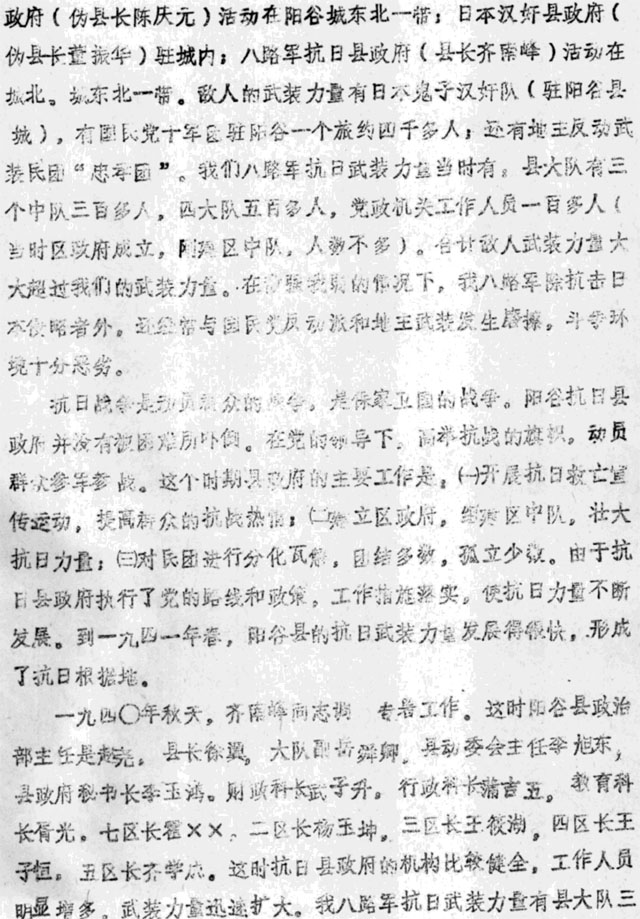 政府（伪县长陈庆元）活动在阳谷城东北一带；日本汉奸县政府（
伪县长董振华）驻城内；八路军抗日县政府（县长齐南峰）活动在
城北。城东北一带。敌人的武装力量有日本鬼子汉奸队（驻阳谷县
城），有国民党十军团驻阳谷一个旅约四千多人；还有地主反动武
装民团“忠孝团”。我们八路军抗日武装力量当时有。县大队有三
个中队三百多人，四大队五百多人，党政机关工作人员一百多人（
当时区政府成立，刚建区中队，人数不多）。合计敌人武装力量大
大超过我们的武装力量。在敌强我弱的情况下，我八路军除抗击日
本侵略者外。还经常与国民党反动派和地主武装发生磨擦，斗争环
境十分恶劣。
抗日战争是动员群众的战争，是保家卫国的战争。阳谷抗日县
政府并没有被困难所吓倒。在党的领导下，高举抗战的旗帜，动员
群众参军参战。这个时期县政府的主要工作是：㈠开展抗日救亡宣
传运动，提高群众的抗战热情；㈡建立区政府，组建区中队，壮大
抗日力量；㈢对民团进行分化瓦解，团结多数，孤立少数。由于抗
日县政府执行了党的路线和政策，工作措施落实，使抗日力量不断
发展。到一九四一年春，阳谷县的抗日武装力量发展得很快，形成
了抗日根据地。
一九四〇年秋天，齐南峰同志调 专署工作。这时阳谷县政治
部主任是赵亮，县长徐翼，大队副岳舜卿，县动委会主任李旭东，
县政府秘书长李玉鸿。财政科长武子升，行政科长蒲吉五，教育科
长胥光。七区长翟××，二区长杨玉坤，三区长王筱湖，四区长王
子恒，五区长齐学 。这时抗日县政府的机构比较健全，工作人员
明显增多，武装力量迅速扩大。我八路军抗日武装力量有县大队三